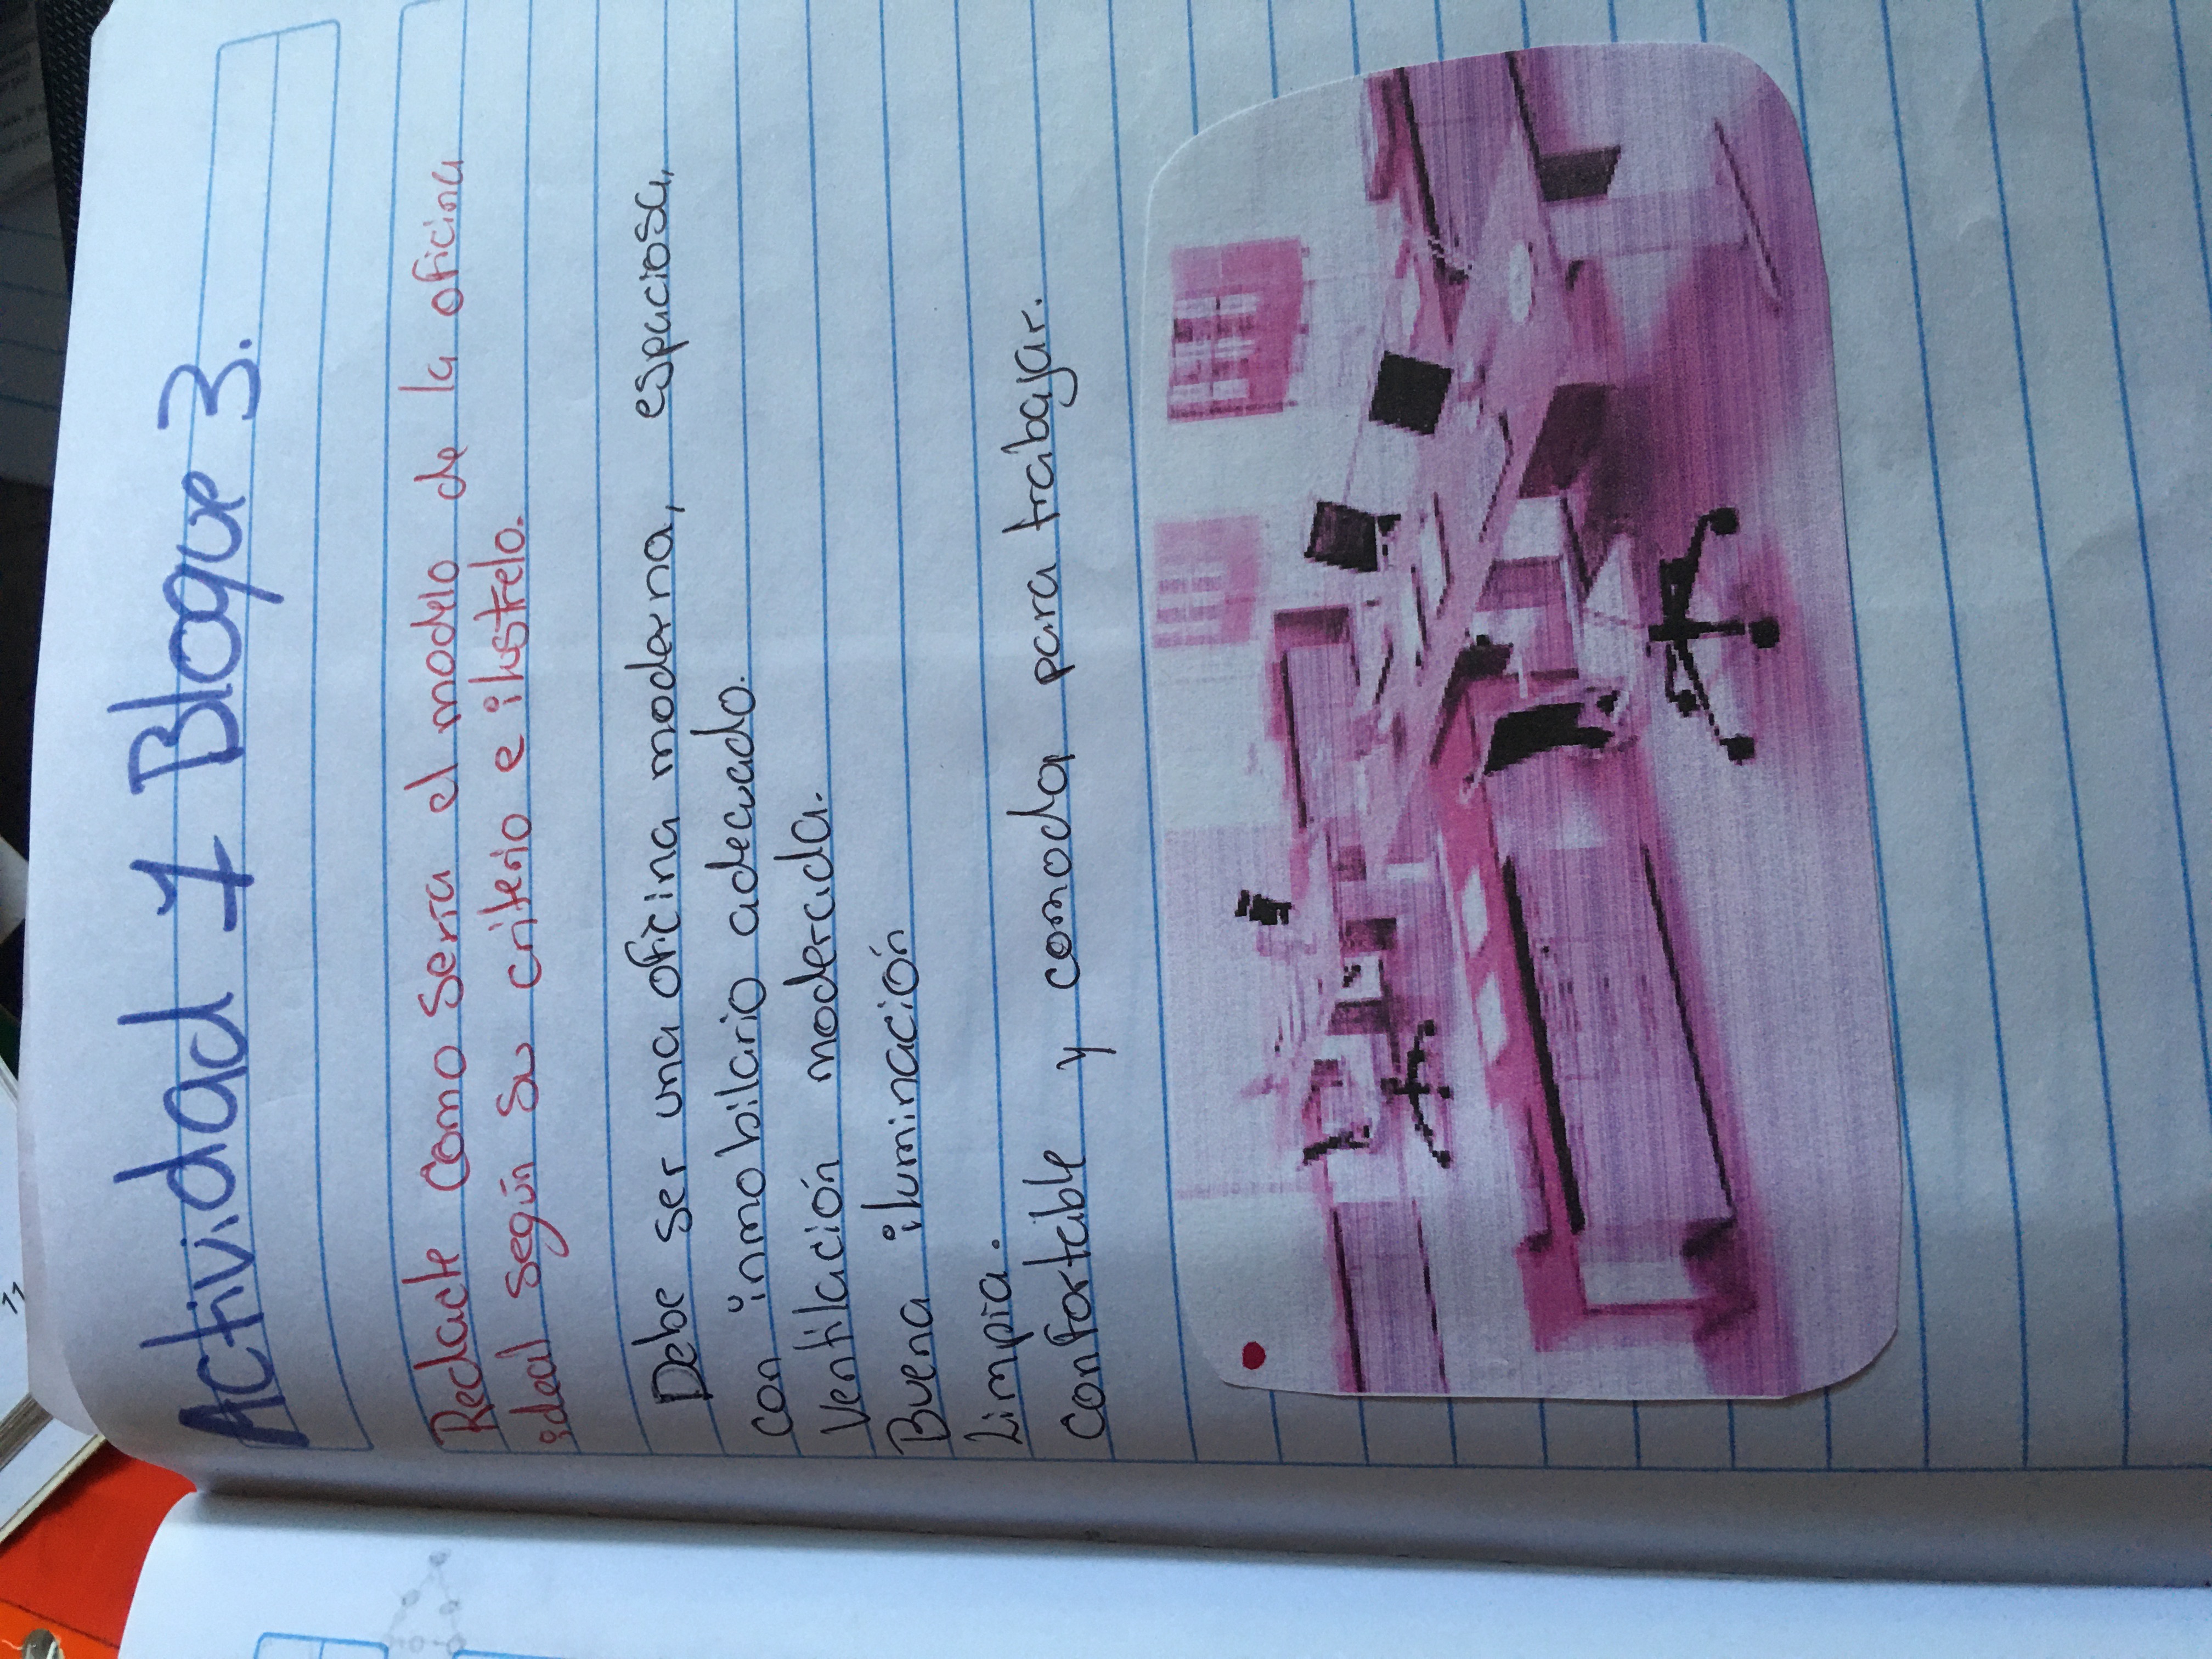 Actividad 1 Bloque 3.
Redacte como sería el modelo de la oficina
ideal según su criterio e ilustrelo.
Debe ser una oficina moderna, espaciosa,
con inmobilario adecuado.
Ventilación moderada.
Buena iluminación
Limpia.
Confortable y comoda para trabajar.